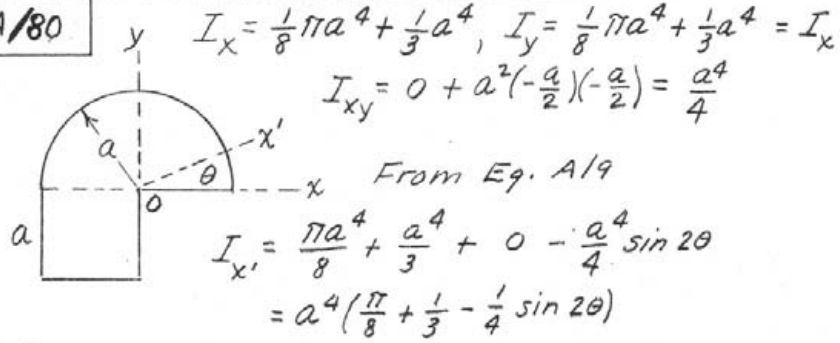 A/80
I_x = 1/8 πa^4 + 1/3 a^4, I_y = 1/8 πa^4 + 1/3 a^4 = I_x
I_xy = 0 + a^2(-a/2)(-a/2) = a^4/4
y
a
x'
θ
x
o
a
From Eq. A/9
I_x' = πa^4/8 + a^4/3 + 0 - a^4/4 sin 2θ
= a^4(π/8 + 1/3 - 1/4 sin 2θ)